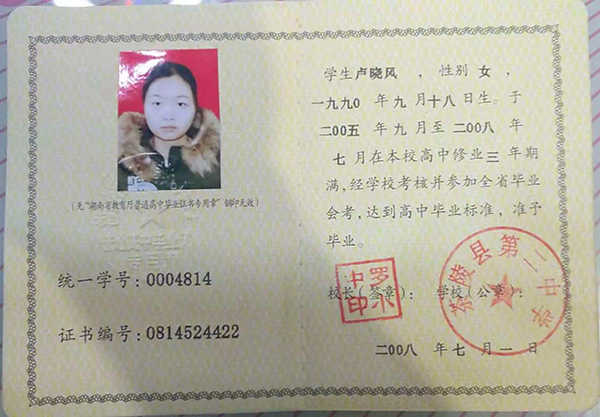 (无"湖南省教育厅普通高中毕业证书专用章"钢印无效)
统一学号: 0004814
证书编号: 0814524422
学生卢晓风 , 性别 女 ,
一九九〇 年 九 月十八日生。于
二〇〇五 年 九 月至 二〇〇八 年
七 月在本校高中修业 三 年期
满,经学校考核并参加全省毕业
会考,达到高中毕业标准,准予
毕业。
校长(签章): 学校(公章):
茶陵县第二中学
二〇〇八 年 七 月 一 日